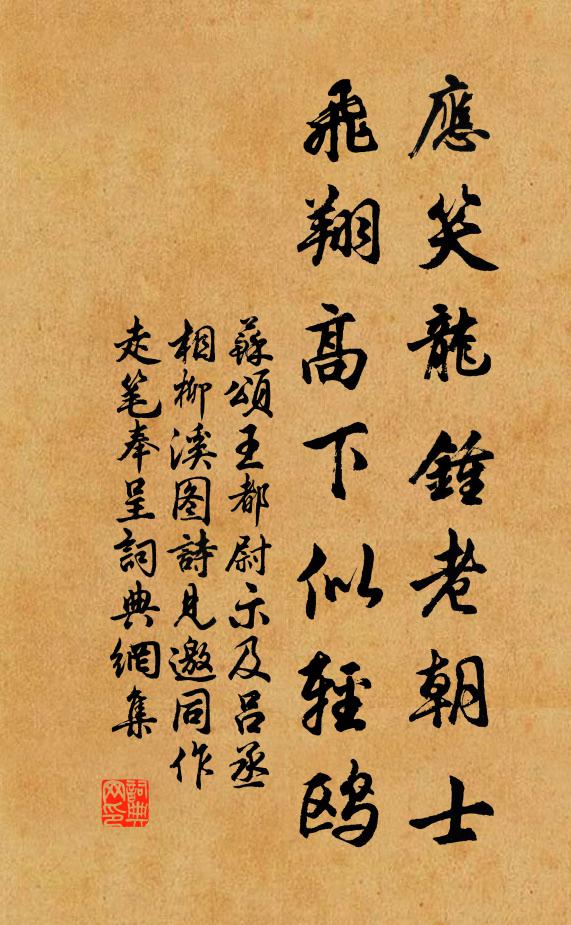 應笑龍鍾老朝士
飛翔高下似輕鷗
蘇頌王都尉示及吕丞
相柳溪图詩見邀同作
走笔奉呈詞典網集
詞典
网印